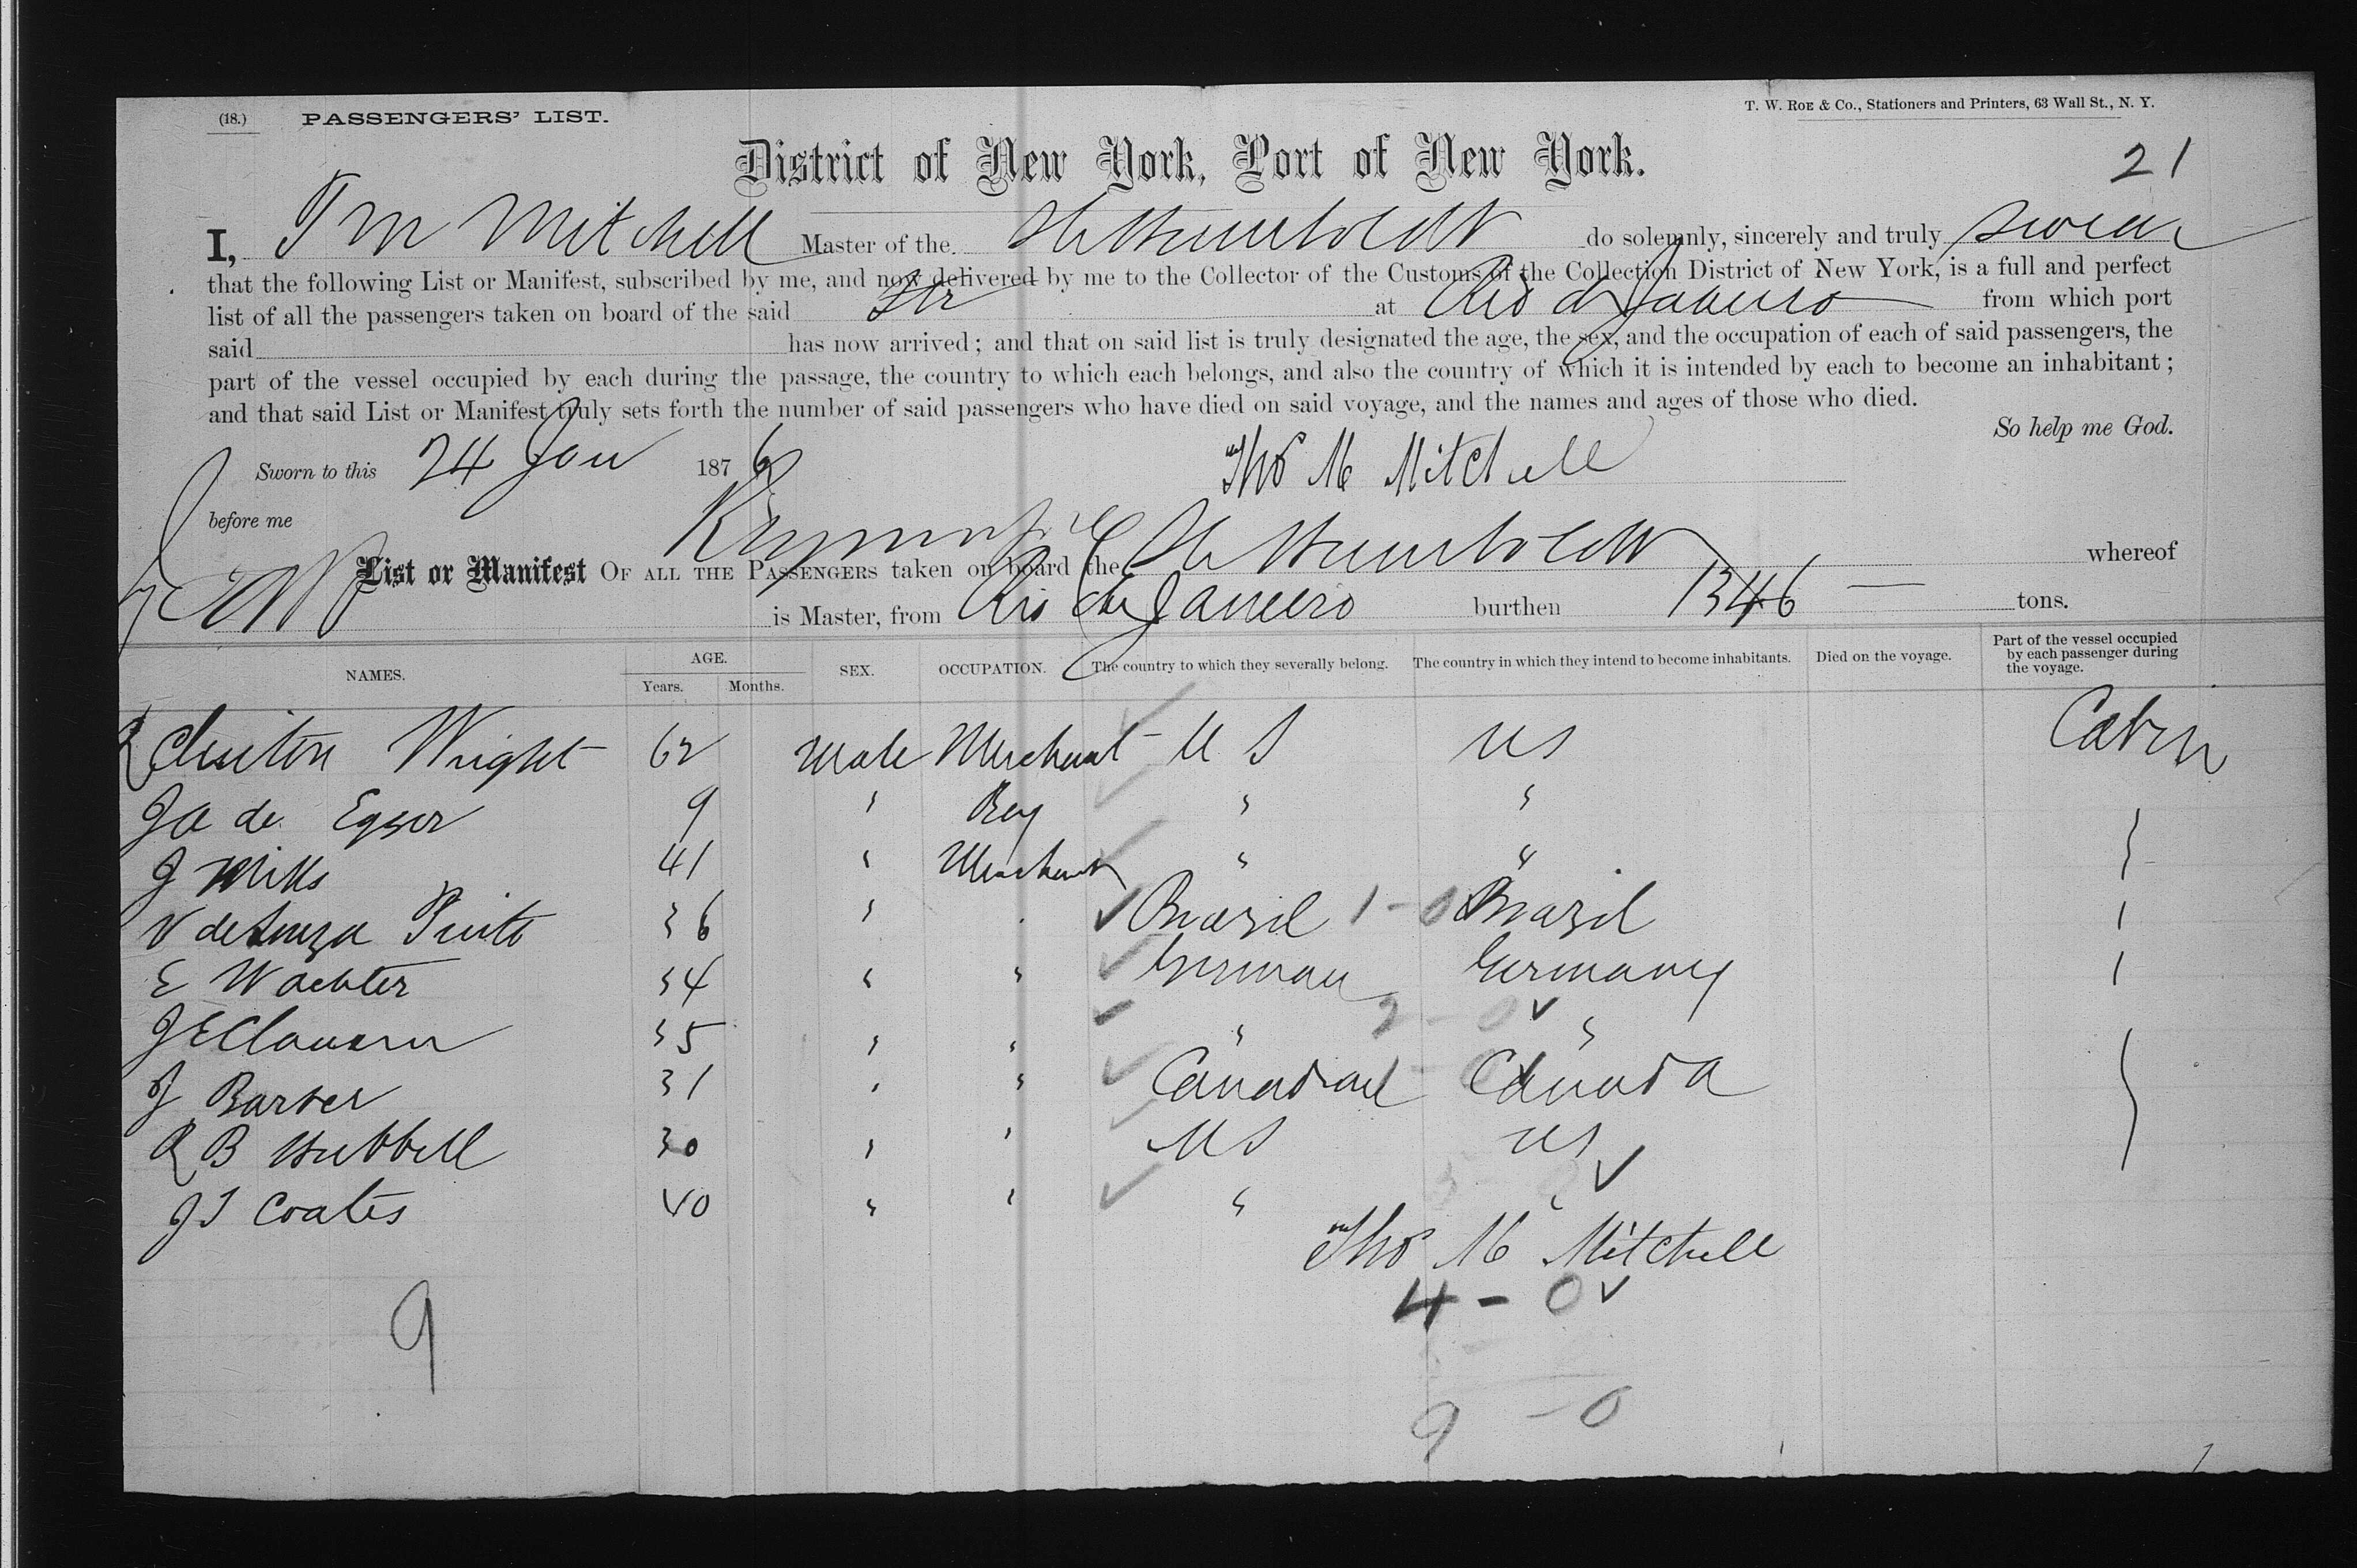 (18.) PASSENGERS' LIST.
T. W. ROE & Co., Stationers and Printers, 63 Wall St., N. Y.
District of New York, Port of New York.
21
I, T M Mitchell Master of the Str Humboldt do solemnly, sincerely and truly swear
that the following List or Manifest, subscribed by me, and now delivered by me to the Collector of the Customs of the Collection District of New York, is a full and perfect
list of all the passengers taken on board of the said Str at Rio de Janeiro from which port
said has now arrived; and that on said list is truly designated the age, the sex, and the occupation of each of said passengers, the
part of the vessel occupied by each during the passage, the country to which each belongs, and also the country of which it is intended by each to become an inhabitant;
and that said List or Manifest truly sets forth the number of said passengers who have died on said voyage, and the names and ages of those who died.
So help me God.
Sworn to this 24 Jan 1876
Thos M Mitchell
before me
List or Manifest OF ALL THE PASSENGERS taken on board the Str Humboldt whereof
is Master, from Rio de Janeiro burthen 1346 — tons.
NAMES. AGE. Years. Months. SEX. OCCUPATION. The country to which they severally belong. The country in which they intend to become inhabitants. Died on the voyage. Part of the vessel occupied by each passenger during the voyage.
Wright 62 Male Merchant U S US Cabin
J A de 9 " Boy " "
J Mills 41 " Merchant " "
V de Souza Pinto 36 " Brazil 1-0 Brazil
E Wachter 34 " " German Germany
J E 35 " " " 2-0 "
J Barber 31 " " Canada
R B Hubbell 30 " " US US
J T Coates 40 " " " "
Thos M Mitchell
4 - 0
9
9 - 0